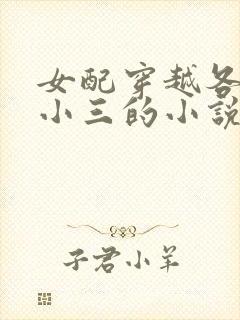 女配穿越各
小三的小说
子君小羊